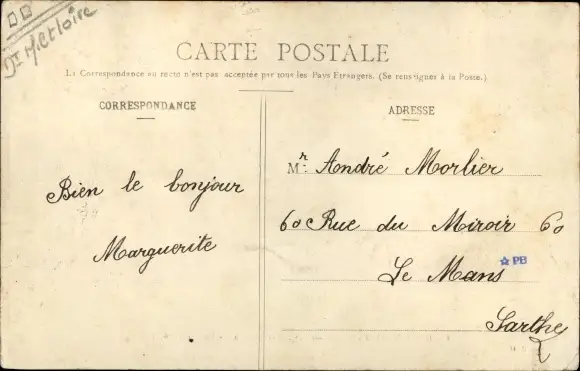 Dt M. et Loire
CARTE POSTALE
La Correspondance au recto n'est pas acceptée par tous les Pays Etrangers. (Se renseigner à la Poste.)
CORRESPONDANCE
Bien le bonjour
Marguerite
ADRESSE
Mr. André Morlier
60 Rue du Miroir 60
Le Mans
☆ PB
Sarthe